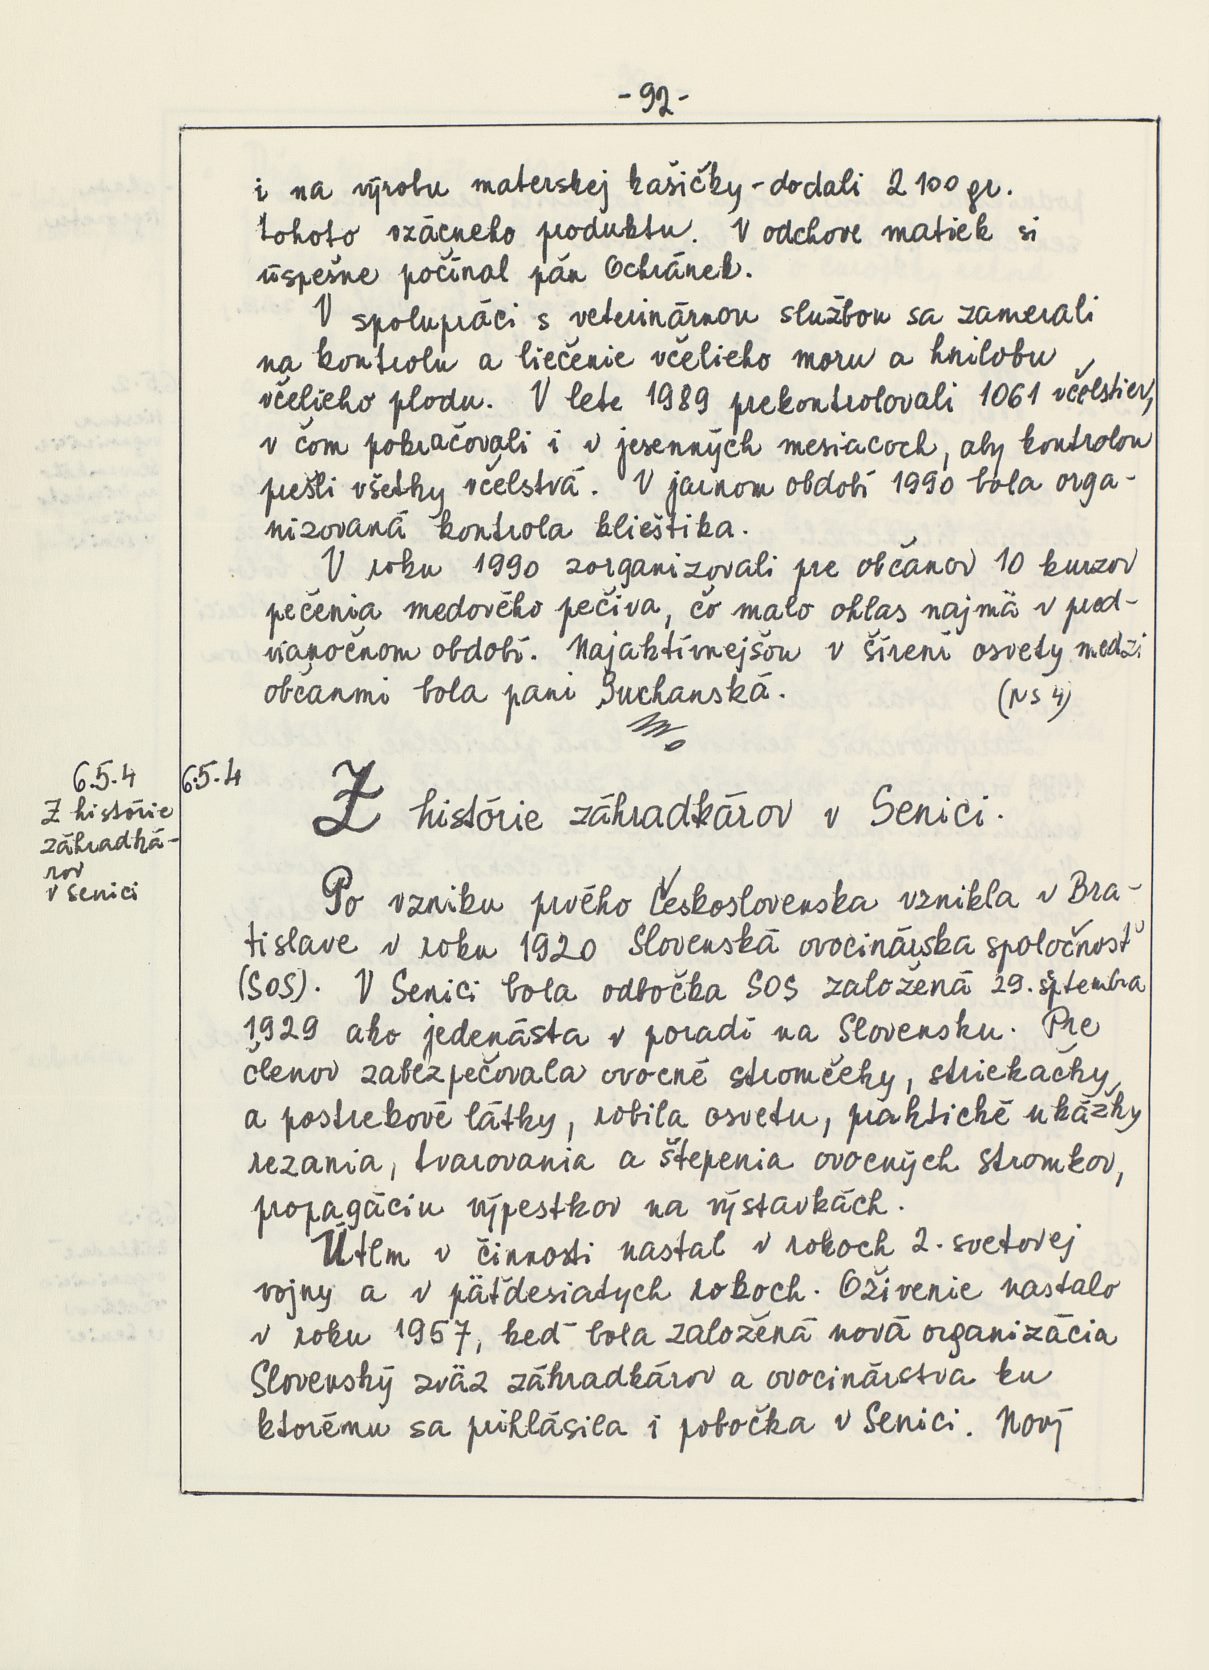 - 92 -
i na výrobu materskej kašičky - dodali 2 100 gr.
tohoto vzácneho produktu. V odchove matiek si
úspešne počínal pán Ochránek.
V spolupráci s veterinárnou službou sa zamerali
na kontrolu a liečenie včelieho moru a hnilobu
včelieho plodu. V lete 1989 prekontrolovali 1061 včelstiev,
v čom pokračovali i v jesenných mesiacoch, aby kontrolou
prešli všetky včelstvá. V jarnom období 1990 bola orga-
nizovaná kontrola klieštika.
V roku 1990 zorganizovali pre občanov 10 kurzov
pečenia medového pečiva, čo malo ohlas najmä v pred-
vianočnom období. Najaktívnejšou v šírení osvety medzi
občanmi bola pani Suchanská.
(NS 4)
6.5.4
Z histórie
záhradká-
rov
v Senici
6.5.4
Z histórie záhradkárov v Senici.
Po vzniku prvého Československa vznikla v Bra-
tislave v roku 1920 Slovenská ovocinárska spoločnosť
(SOS). V Senici bola odbočka SOS založená 29. septembra
1929 ako jedenásta v poradí na Slovensku. Pre
členov zabezpečovala ovocné stromčeky, striekačky
a postrekové látky, robila osvetu, praktické ukážky
rezania, tvarovania a štepenia ovocných stromkov,
propagáciu výpestkov na výstavkách.
Útlm v činnosti nastal v rokoch 2. svetovej
vojny a v päťdesiatych rokoch. Oživenie nastalo
v roku 1957, keď bola založená nová organizácia
Slovenský zväz záhradkárov a ovocinárstva ku
ktorému sa prihlásila i pobočka v Senici. Nový